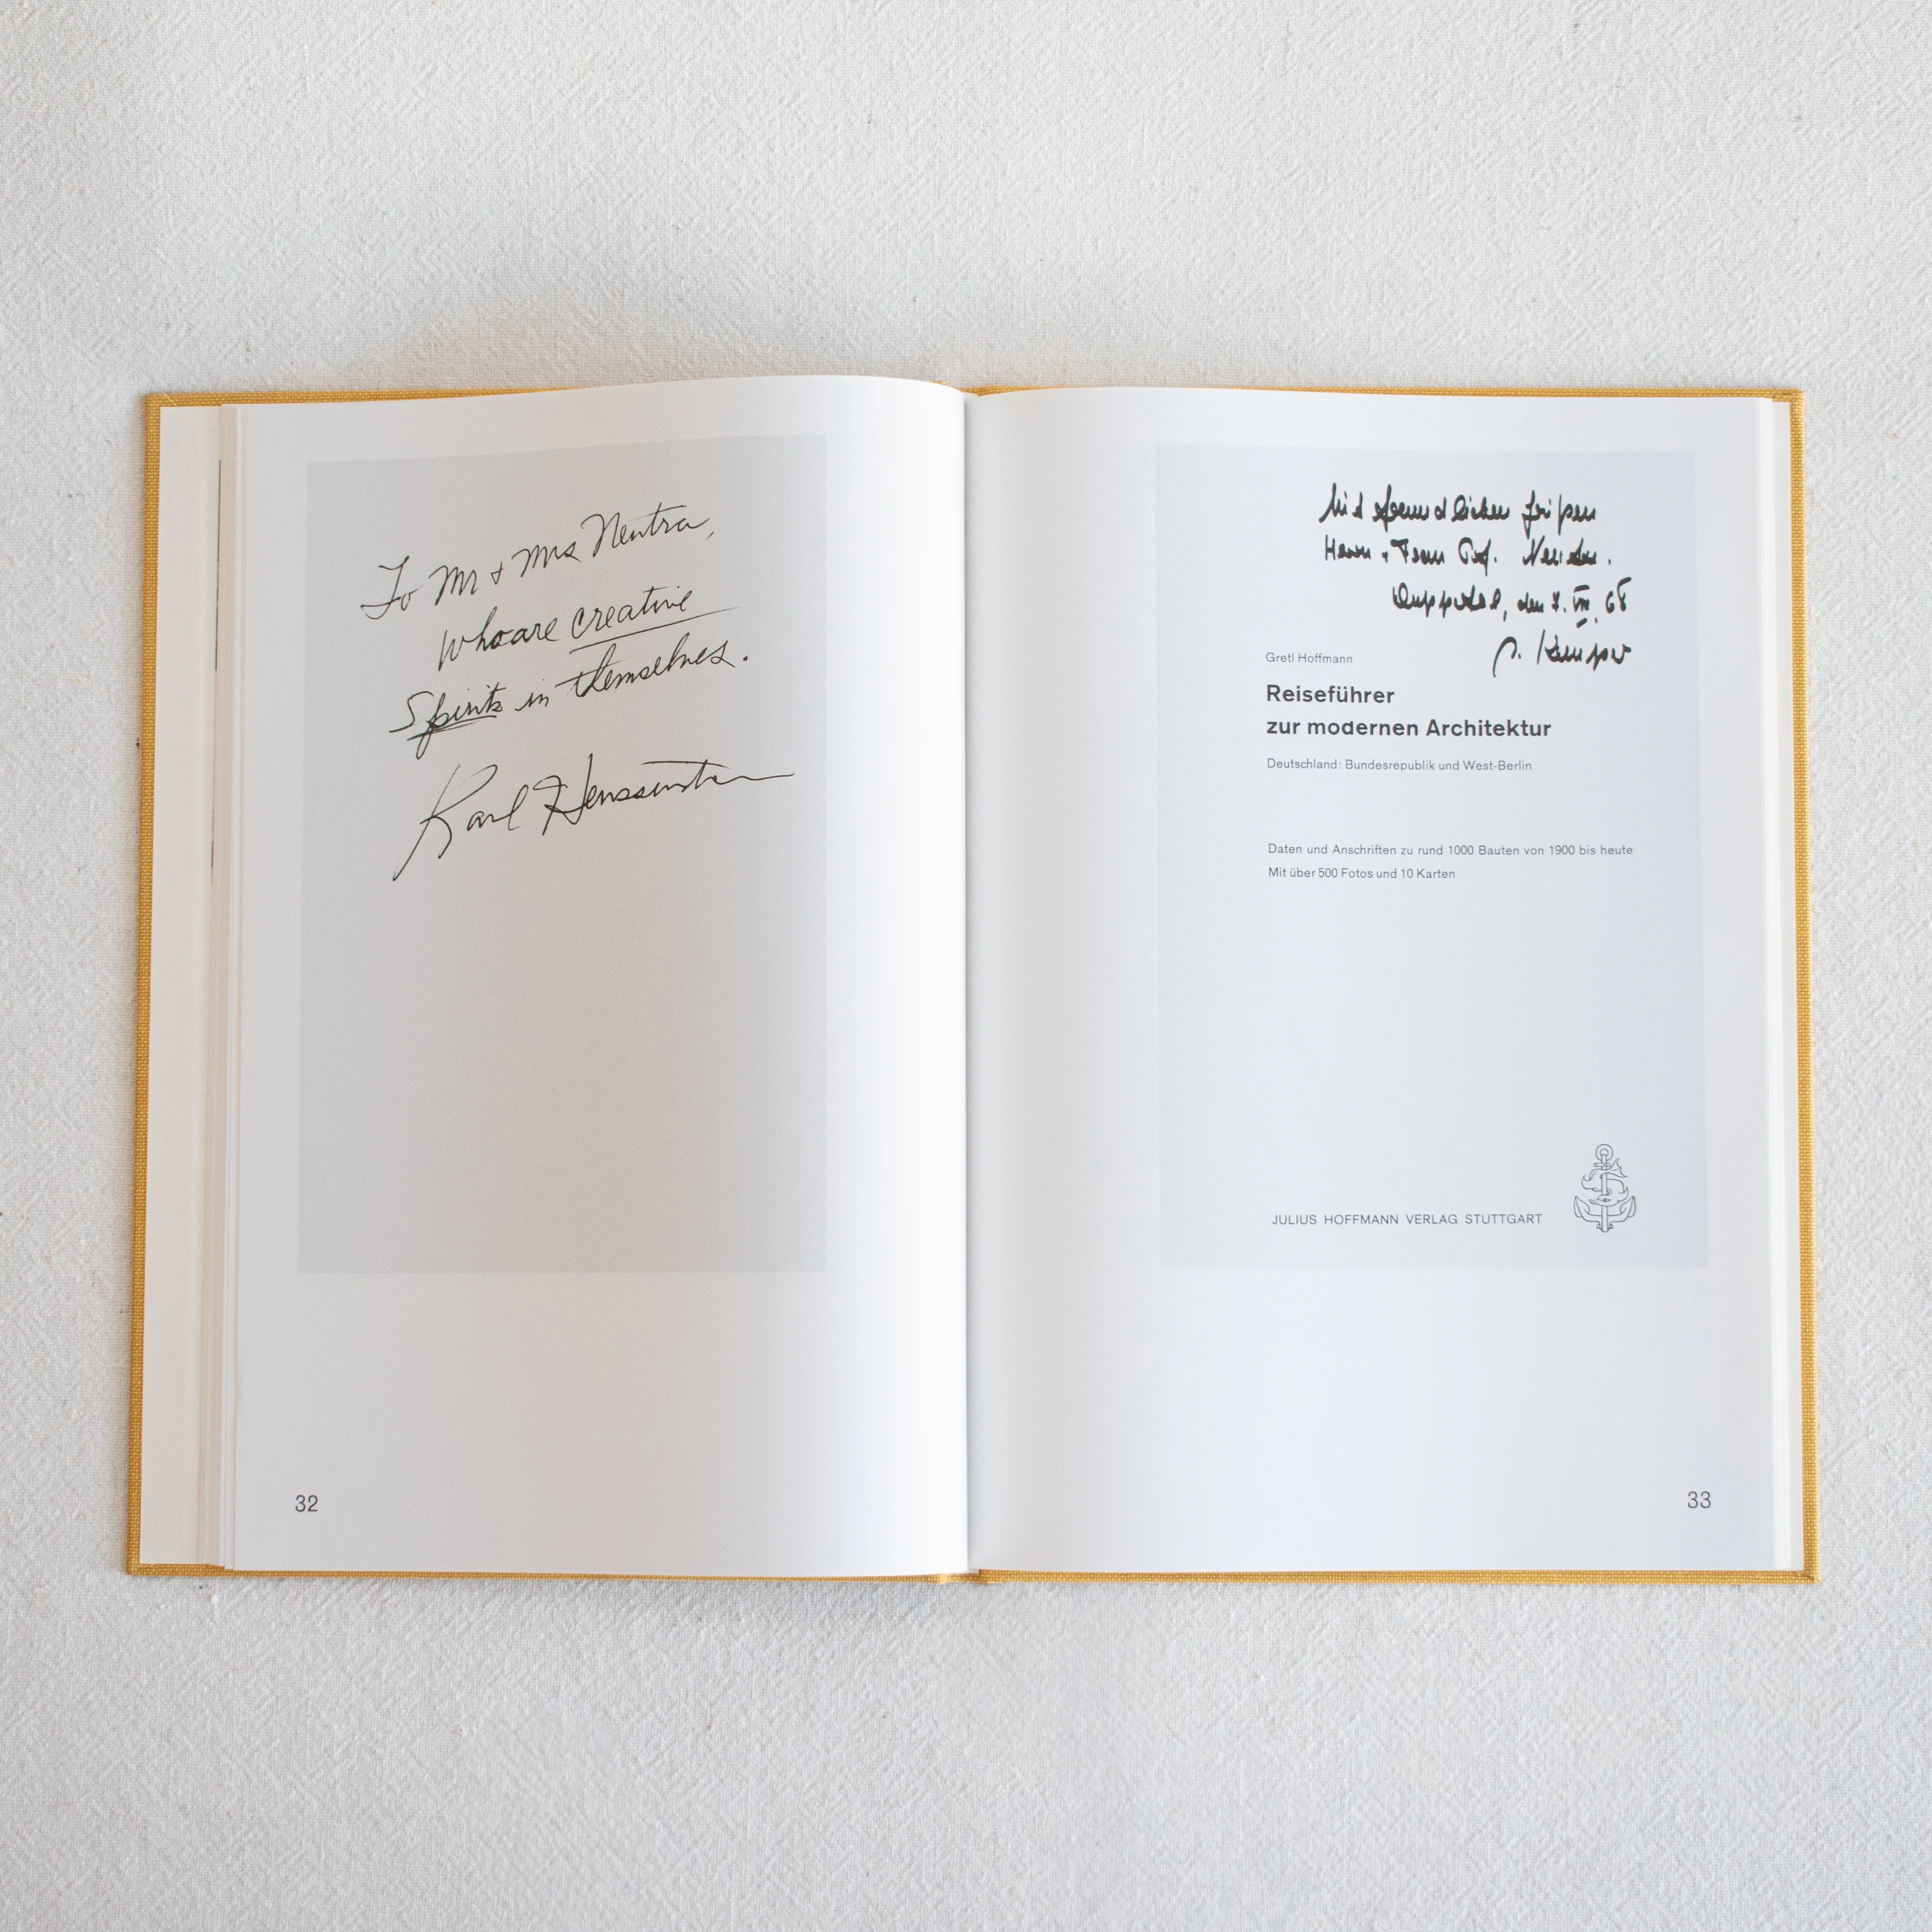 To Mr + Mrs Neutra,
who are creative
Spirits in themselves.
Karl
32
Mit freundlichen Grüßen
Herrn + Frau Prof. Neutra.
Wuppertal, den 7. VIII. 68
Gretl Hoffmann
Reiseführer
zur modernen Architektur
Deutschland: Bundesrepublik und West-Berlin
Daten und Anschriften zu rund 1000 Bauten von 1900 bis heute
Mit über 500 Fotos und 10 Karten
JULIUS HOFFMANN VERLAG STUTTGART
33